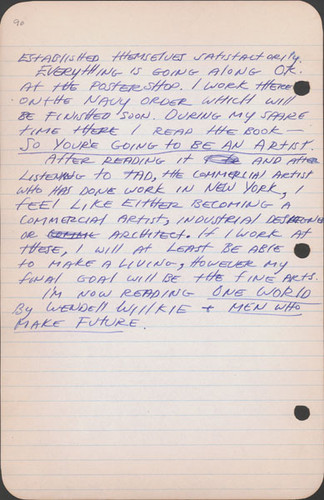 90
ESTABLISHED THEMSELVES SATISFACTORILY.
EVERYTHING IS GOING ALONG OK.
AT THE POSTERSHOP. I WORK THERE
ON THE NAVY ORDER WHICH WILL
BE FINISHED SOON. DURING MY SPARE
TIME THERE I READ THE BOOK —
SO YOU'RE GOING TO BE AN ARTIST.
AFTER READING IT AND AFTER
LISTENING TO TAD, THE COMMERCIAL ARTIST
WHO HAS DONE WORK IN NEW YORK, I
FEEL LIKE EITHER BECOMING A
COMMERCIAL ARTIST, INDUSTRIAL DESIGNER
OR ARCHITECT. IF I WORK AT
THESE, I WILL AT LEAST BE ABLE
TO MAKE A LIVING, HOWEVER MY
FINAL GOAL WILL BE THE FINE ARTS.
I'M NOW READING ONE WORLD
BY WENDELL WILLKIE + MEN WHO
MAKE FUTURE.